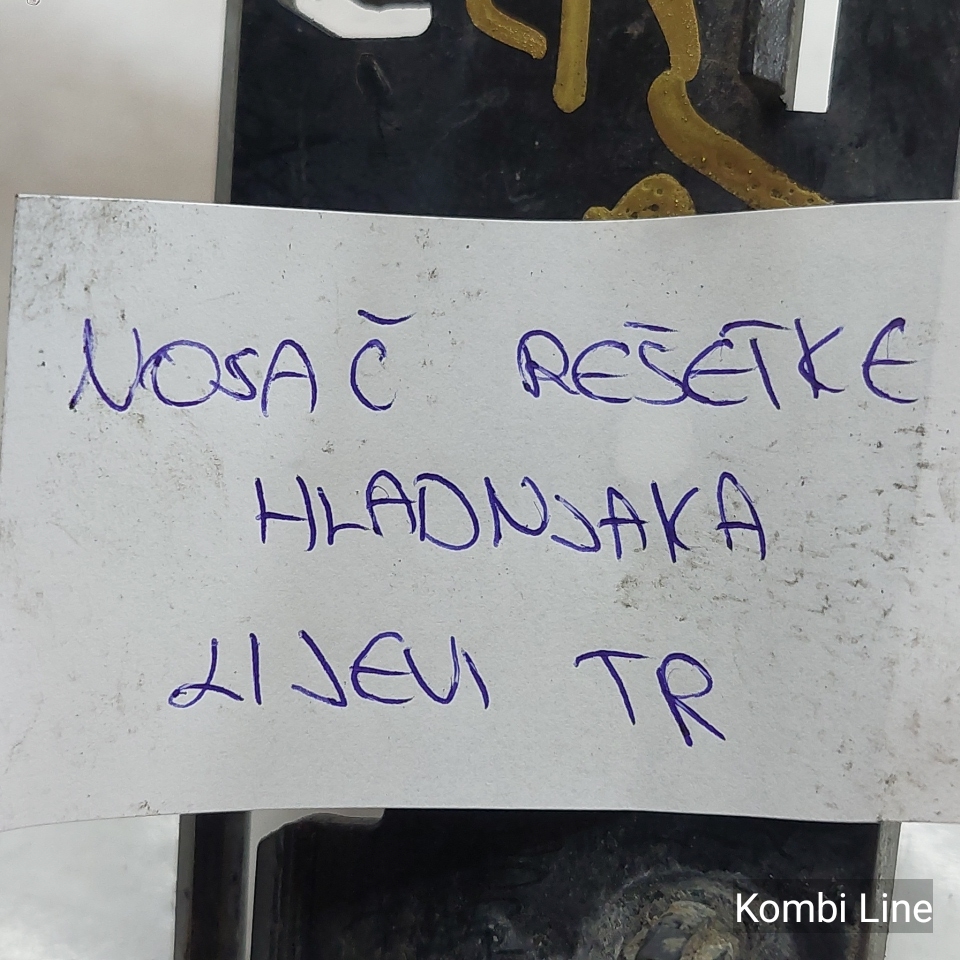 NOSAČ REŠETKE
HLADNJAKA
LIJEVI TR
Kombi Line